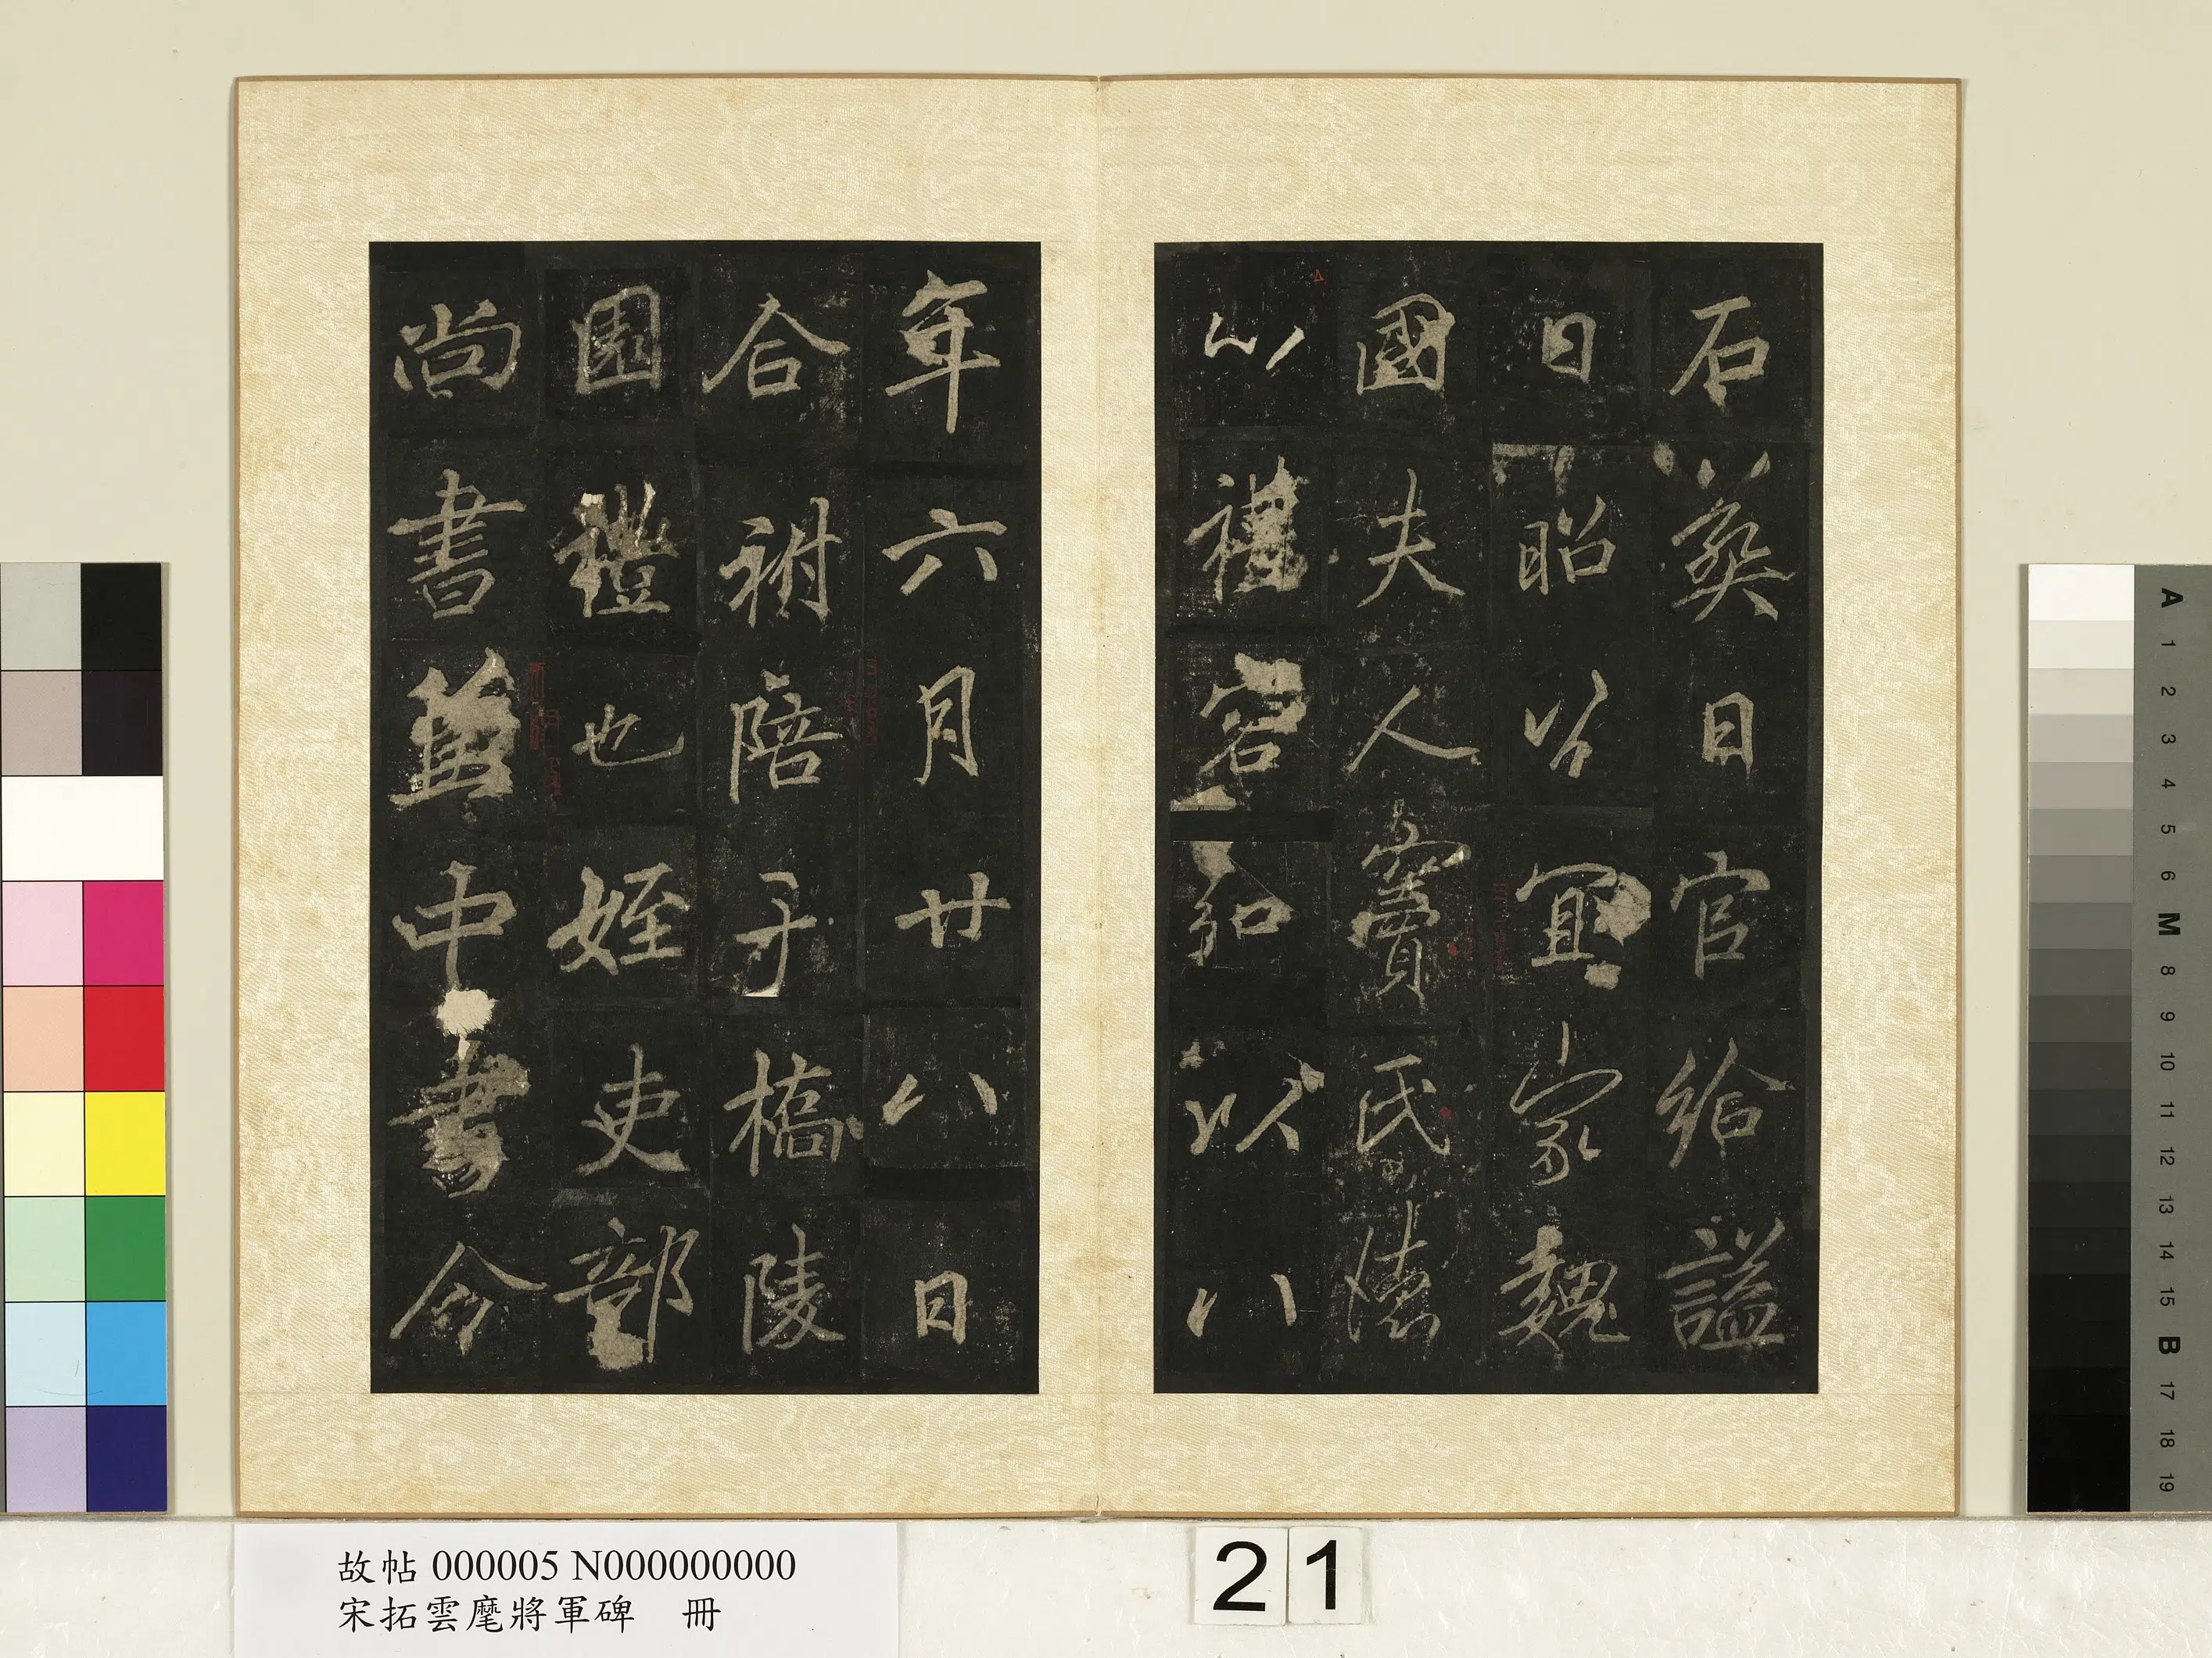 石葬日官給謚
日昭公宜家魏
國夫人竇氏德
心禮容和以八
年六月廿八日
合祔陪于橋陵
園禮也姪吏部
尚書兼中書令
故帖 000005 N000000000
宋拓雲麾將軍碑 冊
21
A 1 2 3 4 5 6 M 8 9 10 11 12 13 14 15 B 17 18 19